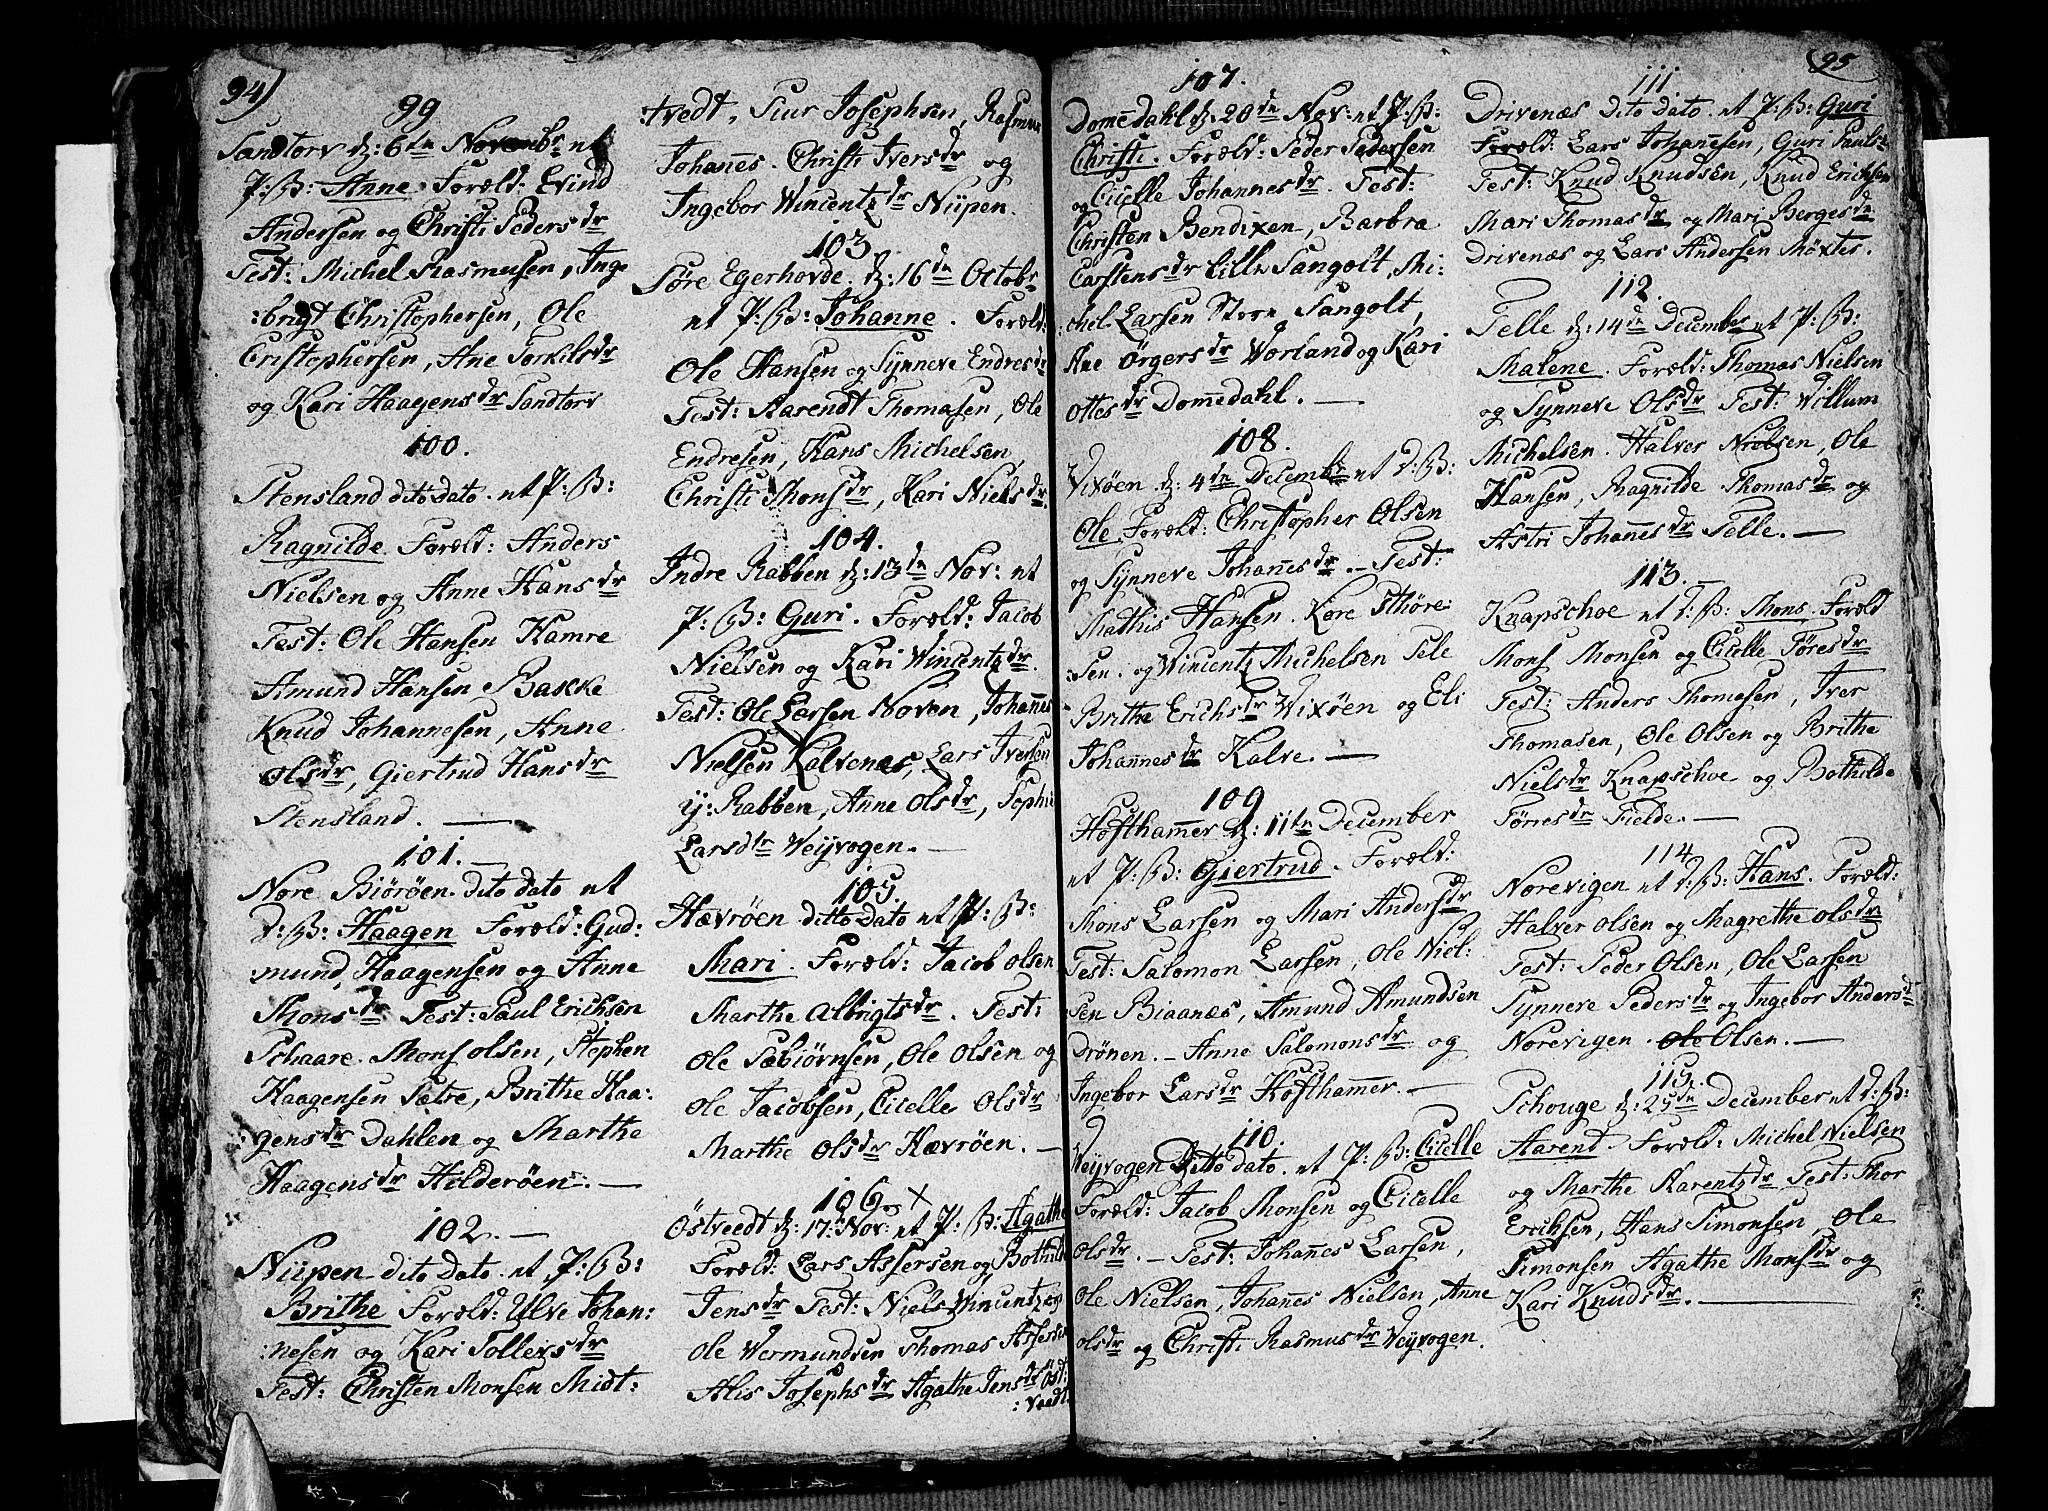 94)
99
Sandtorv d: 6te Novembr et
P: B: Anne. Foræld: Evind
Andersen og Christi Pedersdr
Test: Michel Rasmussen, Inge
:brigt Christophersen, Ole
Cristophersen, Ane Torkilsdr
og Kari Haagensdr Sandtorv
100.
Stensland dito dato. et P: B:
Ragnilde. Foræld: Anders
Nielsen og Anne Hansdr
Test: Ole Hansen Hamre
Amund Hansen Bakke
Knud Johannesen, Anne
Olsdr, Giertrud Hansdr
Stensland.
101.
Nore Biöröen. dito dato et
D: B: Haagen Foræld: Gud:
mund Haagensen og Anne
Monsdr Test: Paul Erichsen
Schaare. Mons olsen, Stephen
Haagensen Sætre, Brithe Haa:
:gensdr Dahlen og Marthe
Haagensdr Hilderöen.
102.
Niipen dito dato. et P: B:
Brithe Foræld: Ulve Johan:
:nesen og Kari Tollevsdr
Test: Christen Monsen Midt:
:tvedt, Siur Josephsen, Rasmus
Johannes. Christi Iversdr og
Ingebor Wincentzdr Niipen.
103.
Söre Egerhovde. d: 16de Octobr
et P: B: Johanne. Foræld:
Ole Hansen og Synneve Endresdr
Test: Aarendt Thomasen, Ole
Endresen, Hans Michelsen,
Christi Monsdr, Kari Nielsdr
104.
Indre Rabben d: 13de Nov: et
P: B: Guri. Foræld: Jacob
Nielsen og Kari Wincentzdr.
Test: Ole Larsen Noven, Johannes
Nielsen Kalvenæs, Lars Iversen
y: Rabben, Anne Olsdr, Sophie
Larsdtr Veyvogen.
105.
Hævröen ditto dato et P: B:
Mari. Foræld: Jacob olsen
Marthe Albrigtsdr. Test:
Ole Sæbiörnsen, Ole Olsen og
Ole Jacobsen, Cicelle Olsdr
Marthe Olsdr Hævröen.
106. X
Östveedt d: 17. Nov: et P: B: Agathe
Foræld: Lars Assersen og Bothilde
Jensdr Test: Niels Wincentzen
Ole Vermundsen Thomas Assersen
Alis Josephsdr Agathe Jensdr Öst:
:veedt.
95
107.
Domedahl d: 20de Nov: et P: B:
Christi. Foræld: Peder Pedersen
og Cicelle Johannesdr. Test:
Christen Bendixen, Barbra
Carstensdr Lille Sangolt, Mi:
:chel Larsen Store Sangolt,
Ane Örgersdr Worland og Kari
Ottesdr Domedahl.
108.
Vixöen d: 4de Decembr et D: B:
Ole. Foræld: Christopher Olsen
og Synneve Johannesdr. Test:
Mathis Hansen. Kore Sthöre:
:sen. og Wincentz Michelsen Tele
Brithe Erichsdr Vixöen og Eli
Johannesdr Kalve.
109
Hofthammer d: 11te December
et P: B: Giertrud. Foræld:
Mons Larsen og Mari Andersdr
Test: Salomon Larsen, Ole Niel:
sen Biaanæs, Amund Amundsen
Drönen. Anne Salomonsdr og
Ingebor Larsdr Hofthammer.
110.
Veyvogen Ditto dato. et P: B: Cicelle
Foræld: Jacob Monsen og Cicelle
Olsdr. Test: Johannes Larsen,
Ole Nielsen, Johannes Nielsen, Anne
olsdr og Christi Rasmusdr Veyvogen.
111
Drivenæs dito dato. et P: B: Guri
Foræld: Lars Johannesen, Guri Paulsdr
Test: Knud Knudsen, Knud Erichsen
Mari Thomasdr og Mari Bergesdr
Drivenæs og Lars Andersen Möxter.
112.
Telle d: 14de December et P: B:
Malene. Foræld: Thomas Nielsen
og Synneve Olsdr Test: Willum
Michelsen. Halver Nielsen, Ole
Hansen, Ragnilde Thomasdr og
Astri Johannesdr Telle.
113.
Knapschoe et D: B: Mons. Foræld
Mons Monsen og Cicelle Föresdr
Test: Anders Thomesen, Iver
Thomasen, Ole Olsen og Brithe
Nielsdr Knapschoe og Bothilde
Törresdr Fielde.
114.
Norevigen et D: B: Hans. Foræld:
Halver Olsen og Magrethe Olsdr
Test: Peder Olsen, Ole Larsen
Synneve Pedersdr og Ingebor Andersdr
Norevigen. Ole Olsen.
115.
Schouge d: 25de December et D: B:
Aarend. Foræld: Michel Nielsen
og Marthe Aarentzdr Test: Thor
Erichsen, Hans Simonsen, Ole
Simonsen Agathe Monsdr og
Kari Knudsdr.